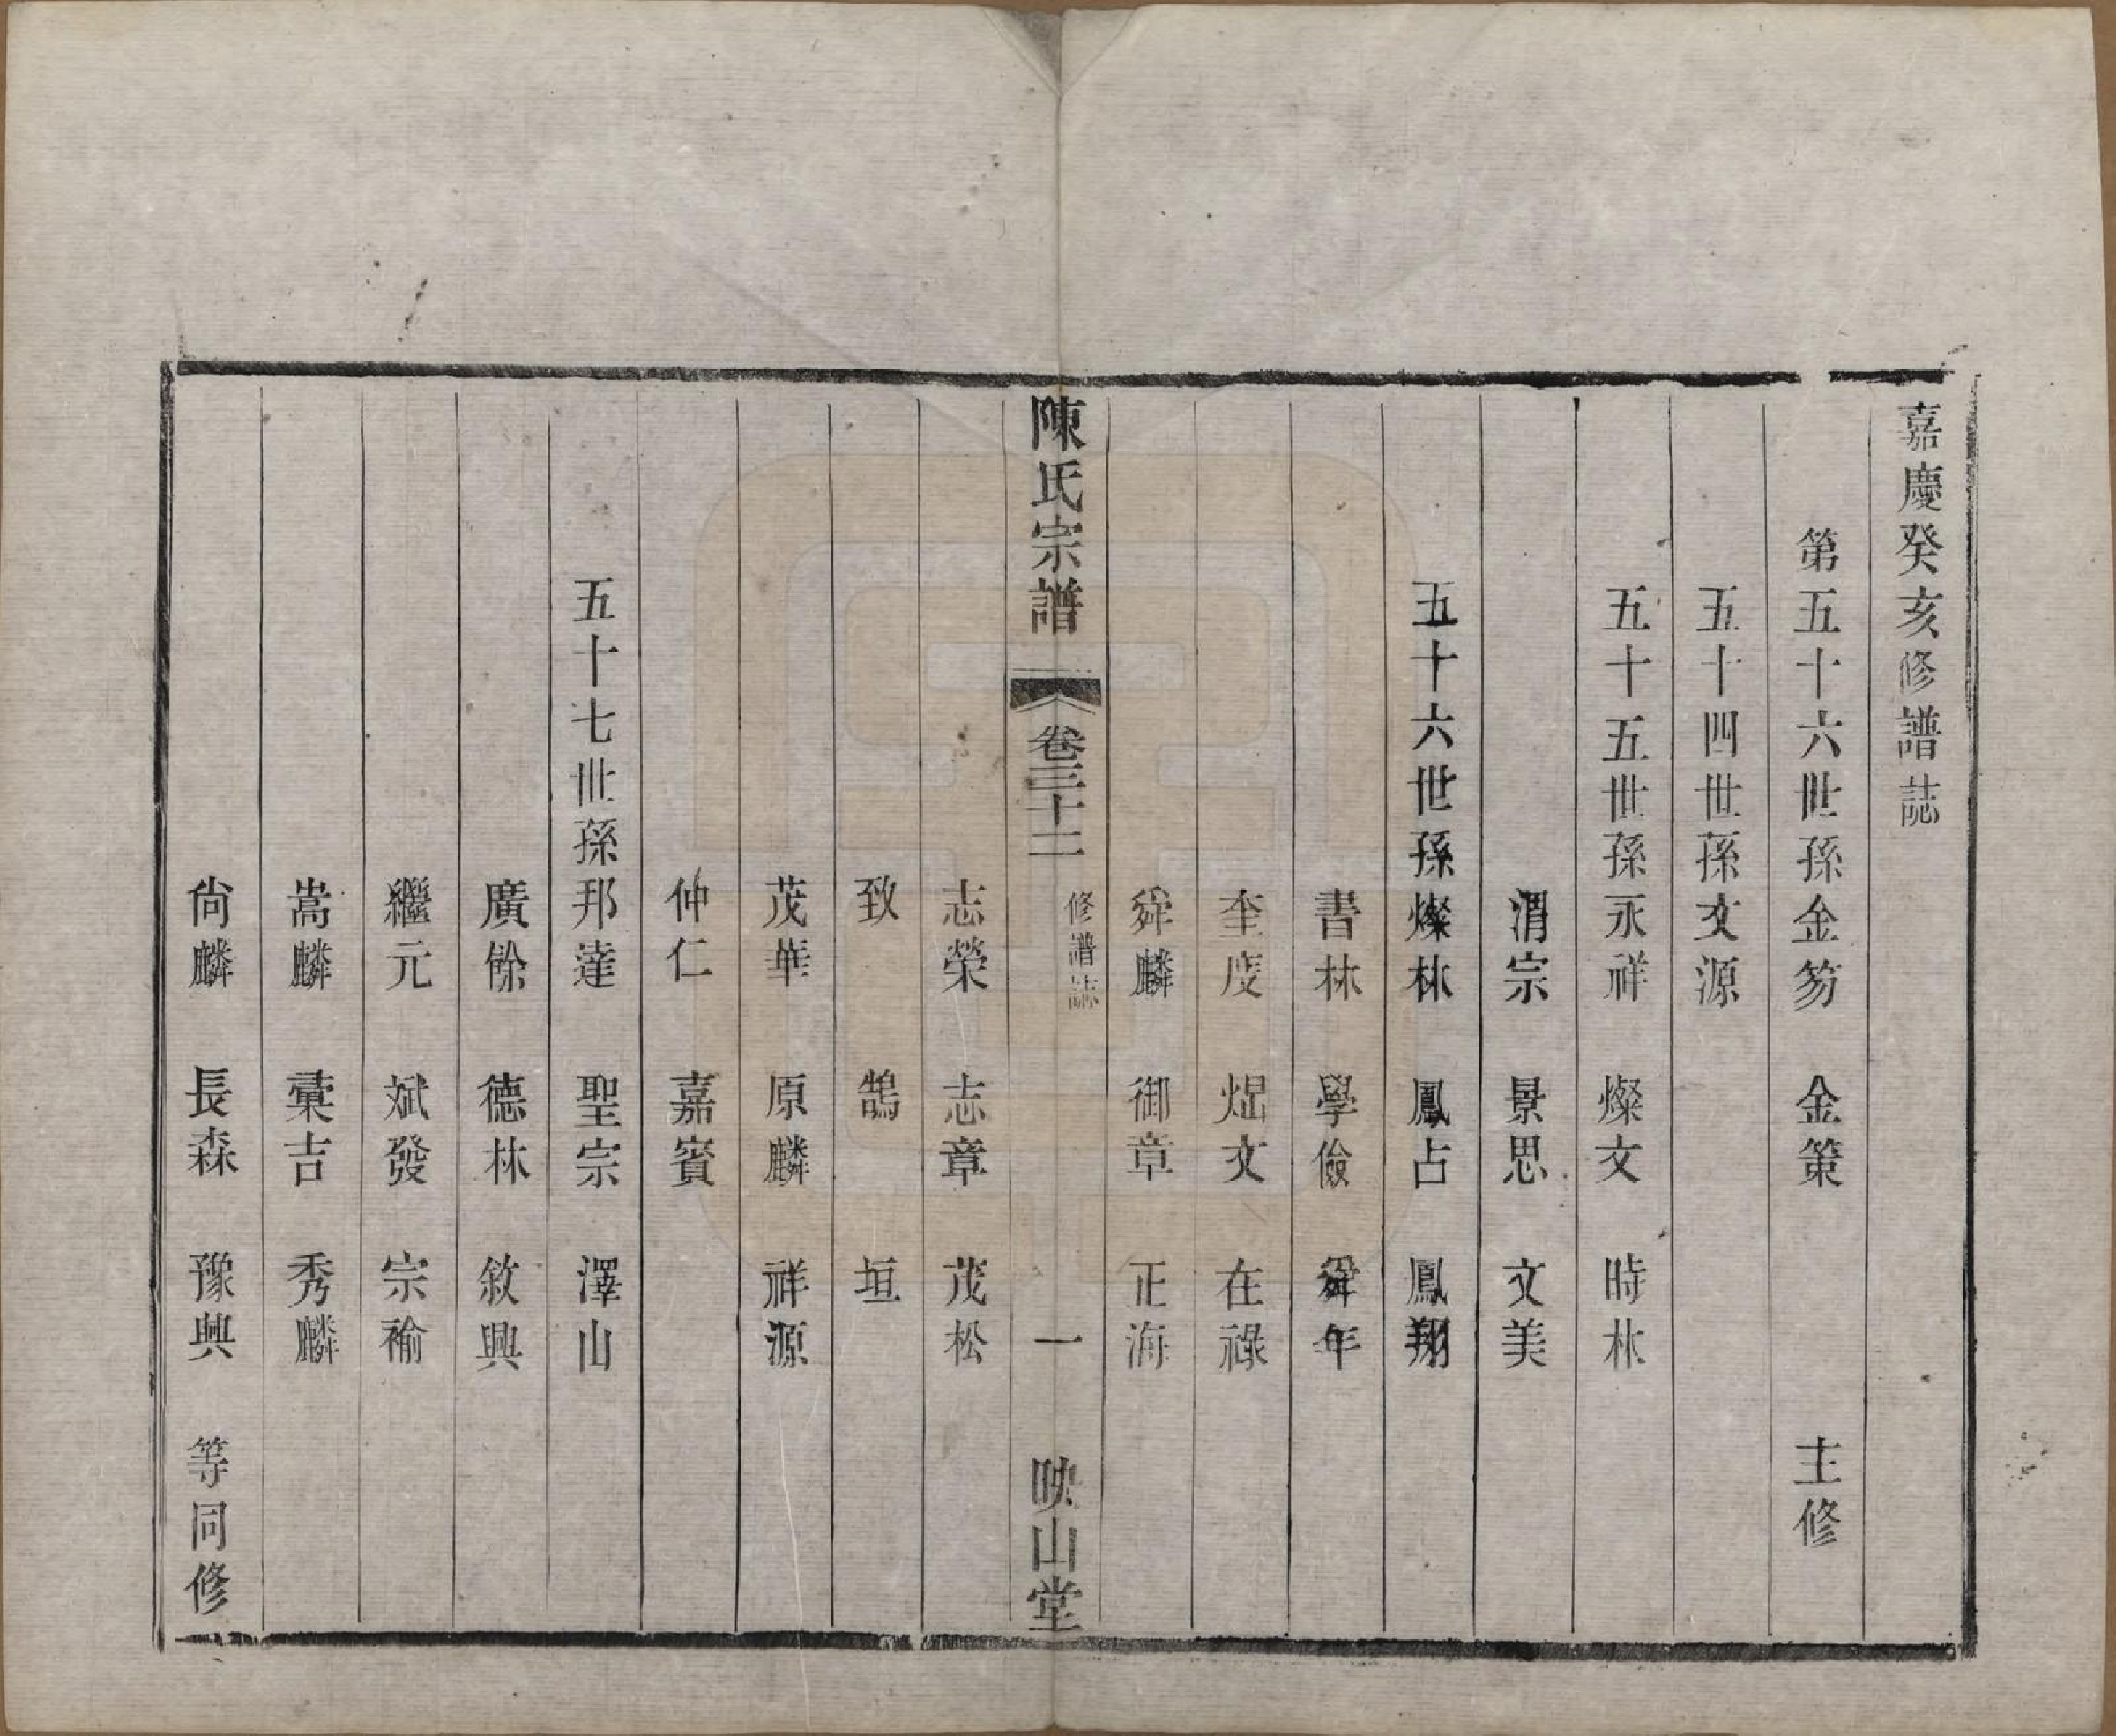 嘉慶癸亥修譜誌
第五十六世孫金笏　金策　主修
五十四世孫文源
五十五世孫永祥　燦文　時林
渭宗　景思　文美
五十六世孫燦林　鳳占　鳳翔
書林　學儉　舜年
奎度　焜文　在祿
舜麟　御章　正海
陳氏宗譜　卷三十二　修譜誌　一　映山堂
志榮　志章　茂松
致　鵠　垣
茂華　原麟　祥源
仲仁　嘉賓
五十七世孫邦達　聖宗　澤山
廣餘　德林　敘興
繼元　斌發　宗褕
嵩麟　彙吉　秀麟
尙麟　長森　豫興　等同修